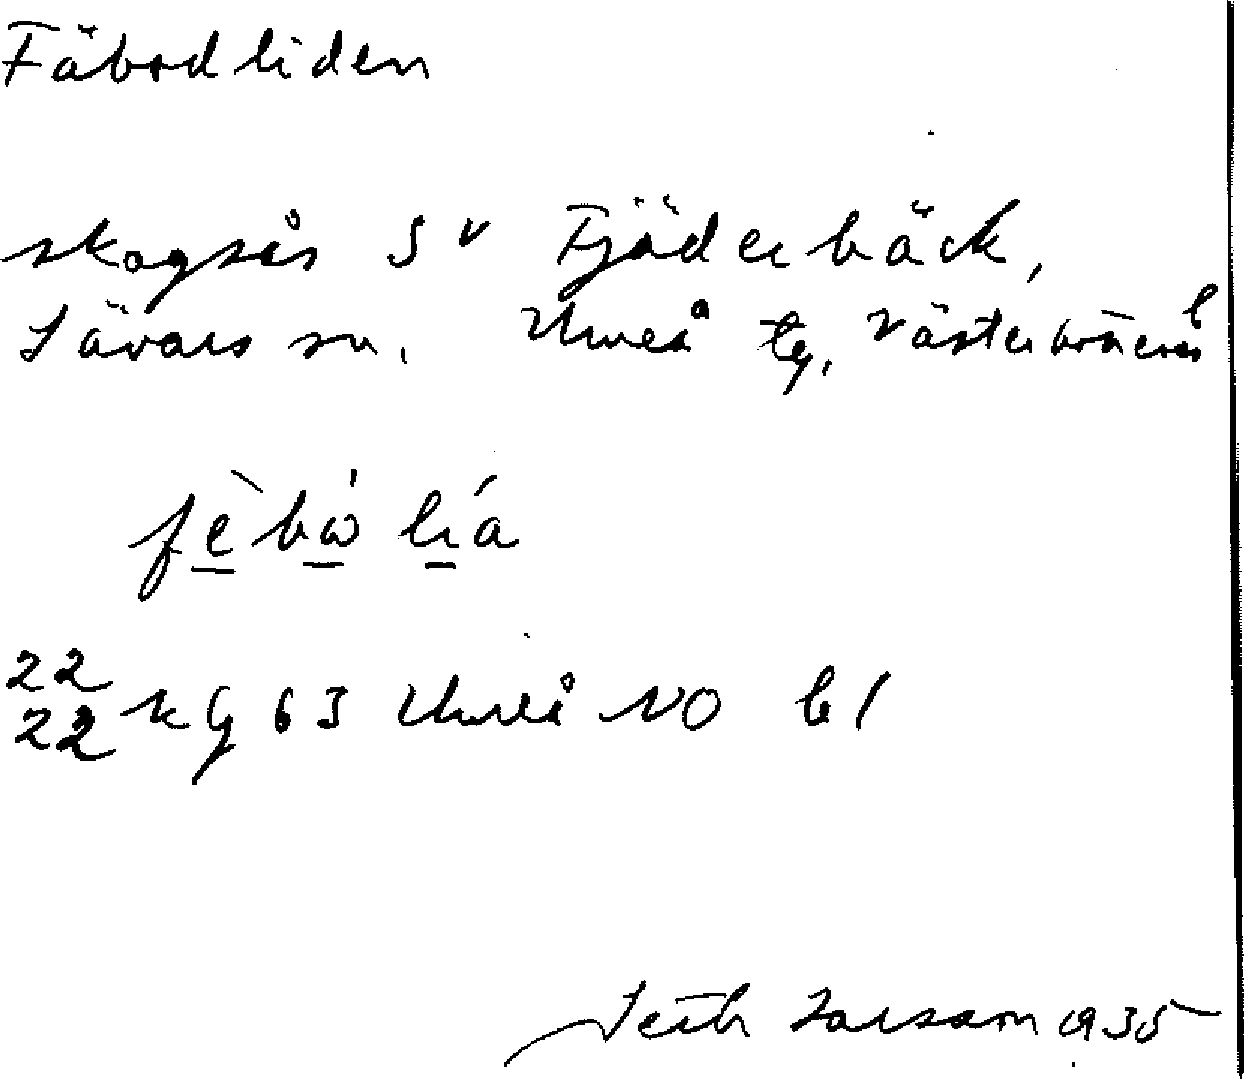 Fäbodliden
skogsås SV Fjäderbäck,
Sävars sn. Umeå tg, Västerbottens l
fèbὼ lía
22 22 kg 63 Umeå NO bl
Seth Larsson 1935